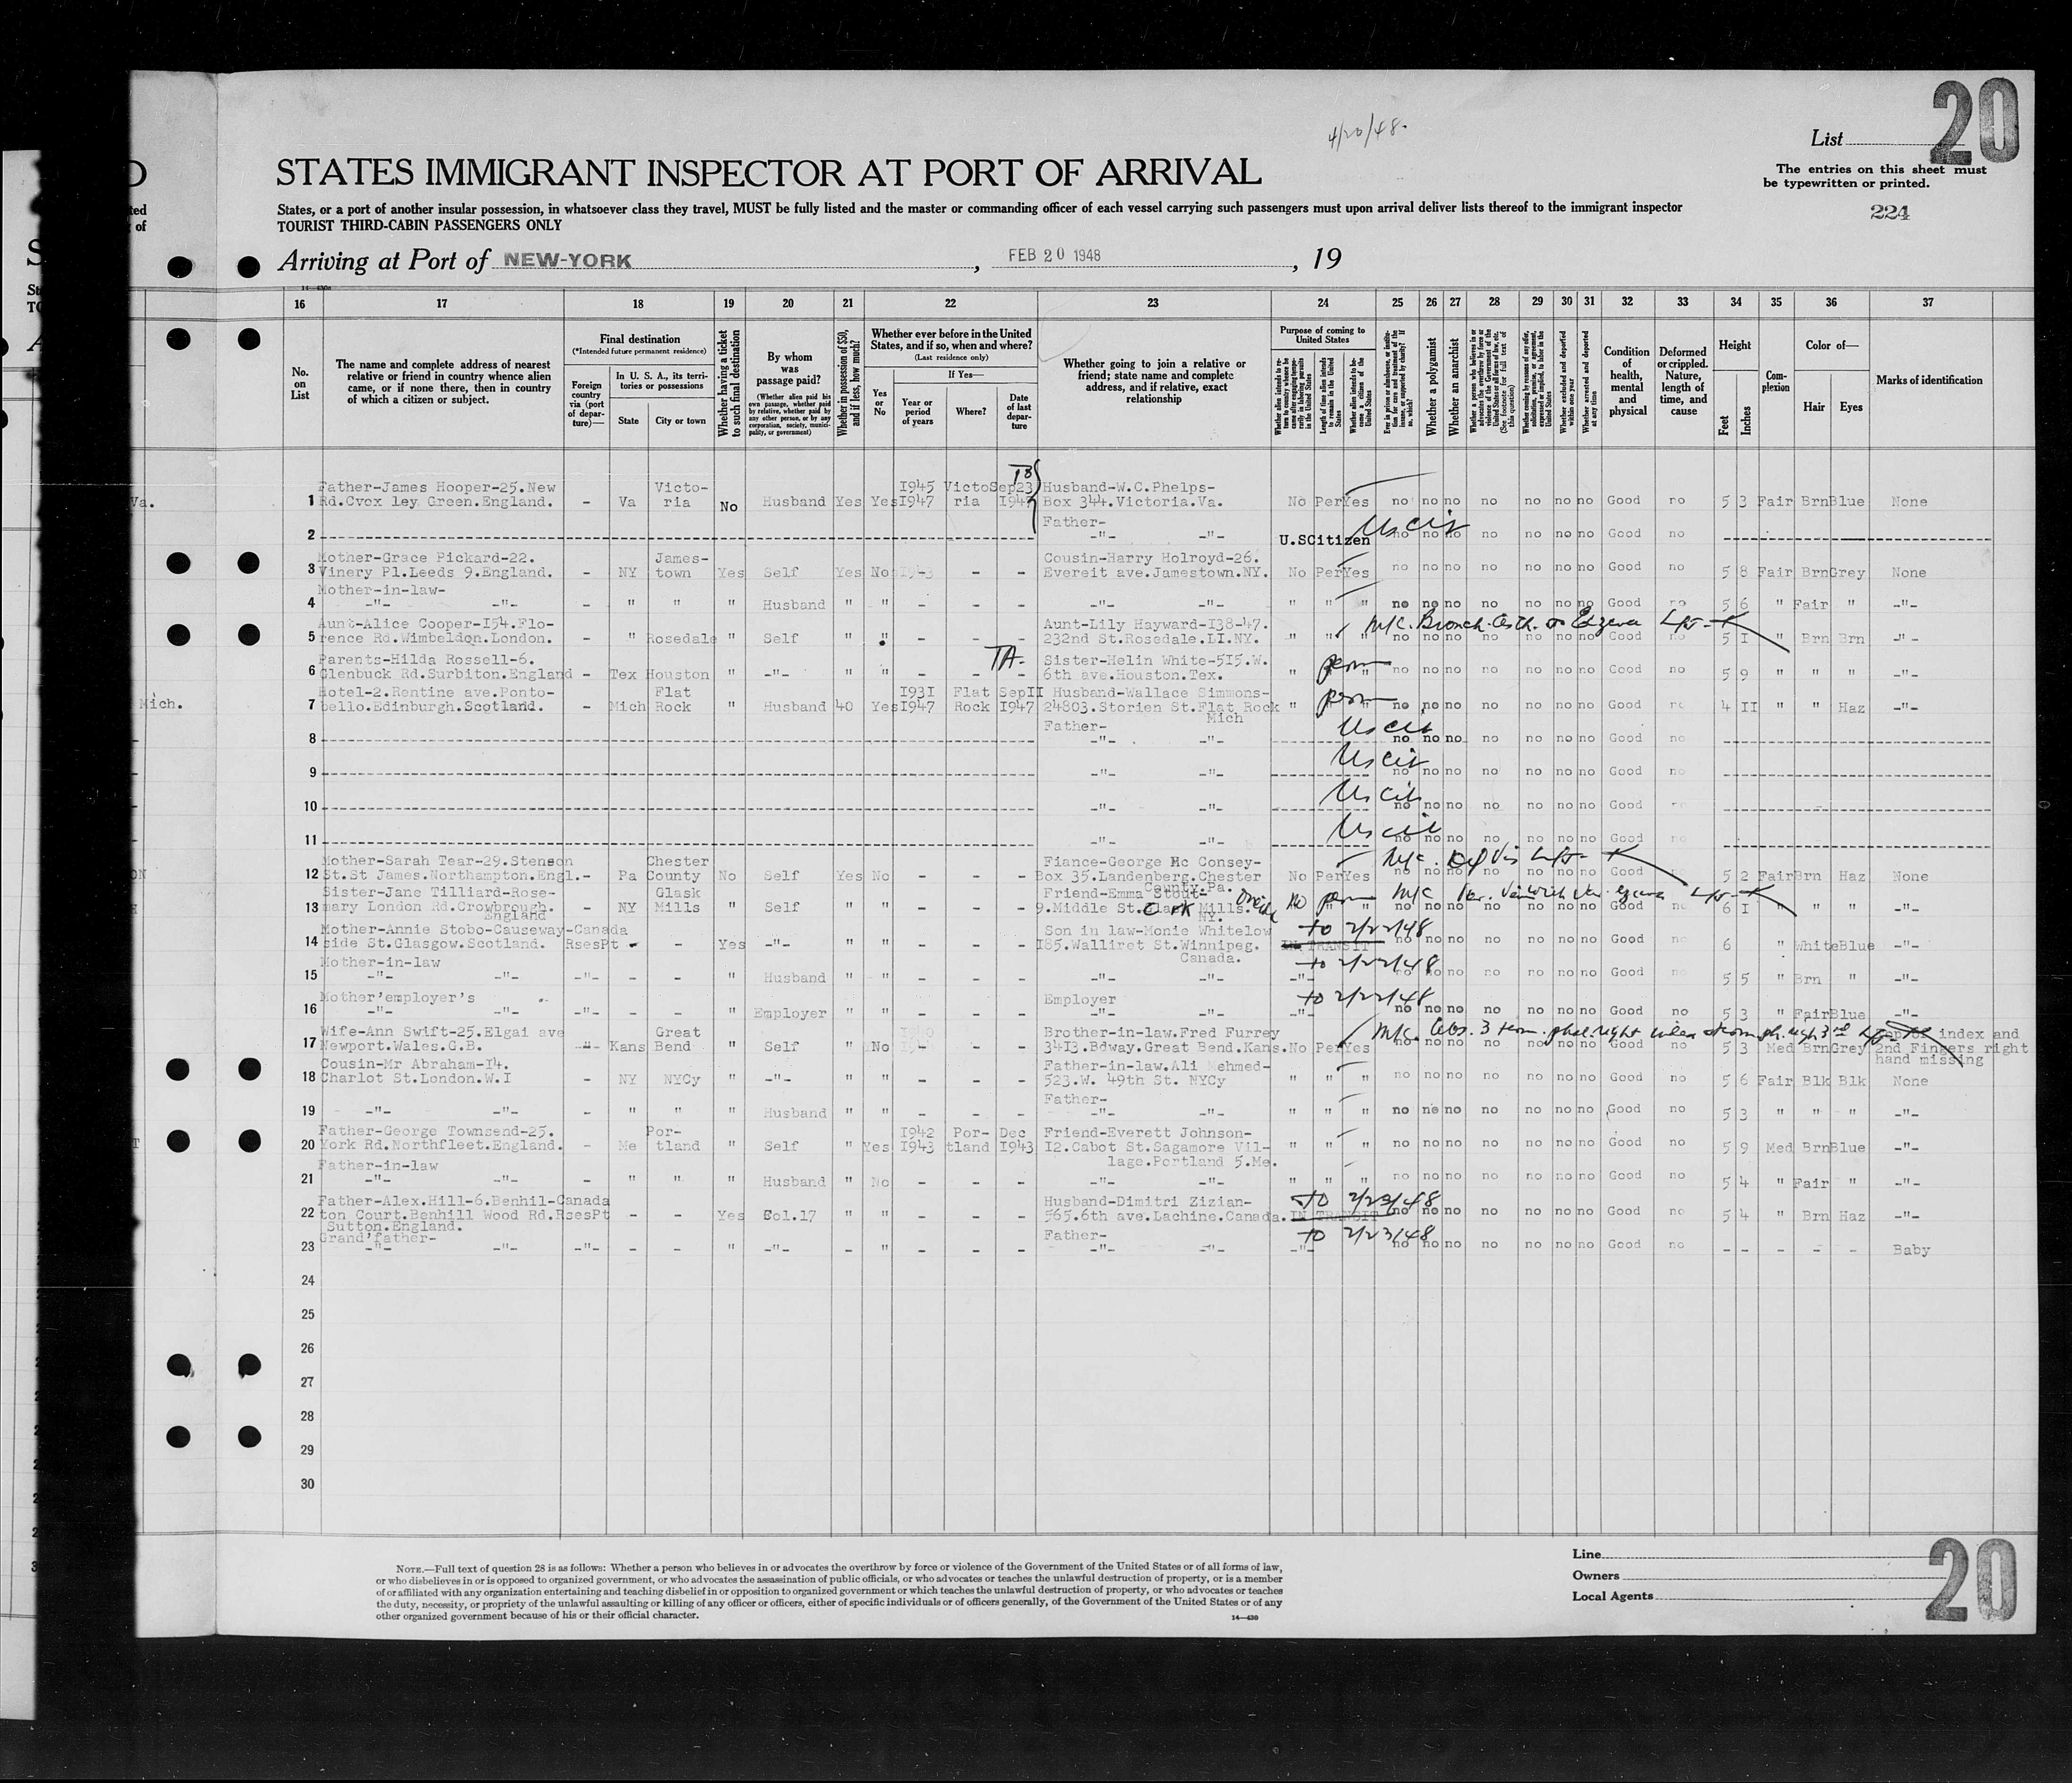 4/20/48.
List 20
The entries on this sheet must
be typewritten or printed.
224
STATES IMMIGRANT INSPECTOR AT PORT OF ARRIVAL
States, or a port of another insular possession, in whatsoever class they travel, MUST be fully listed and the master or commanding officer of each vessel carrying such passengers must upon arrival deliver lists thereof to the immigrant inspector
TOURIST THIRD-CABIN PASSENGERS ONLY
Arriving at Port of NEW-YORK, FEB 20 1948, 19
16 17 18 19 20 21 22 23 24 25 26 27 28 29 30 31 32 33 34 35 36 37
No. on List
The name and complete address of nearest relative or friend in country whence alien came, or if none there, then in country of which a citizen or subject.
Final destination
(*Intended future permanent residence)
Foreign country via (port of departure)—
In U. S. A., its territories or possessions
State
City or town
Whether having a ticket to such final destination
By whom was passage paid?
(Whether alien paid his own passage, whether paid by relative, whether paid by any other person, or by any corporation, society, municipality, or government)
Whether in possession of $50, and if less, how much?
Whether ever before in the United States, and if so, when and where?
(Last residence only)
Yes or No
If Yes—
Year or period of years
Where?
Date of last departure
Whether going to join a relative or friend; state name and complete address, and if relative, exact relationship
Purpose of coming to United States
Length of time alien intends to remain in the United States
Whether alien intends to become a citizen of the United States
Whether a polygamist
Whether an anarchist
Whether excluded and deported within one year
Whether arrested and deported at any time
Condition of health, mental and physical
Deformed or crippled. Nature, length of time, and cause
Height
Feet
Inches
Complexion
Color of—
Hair
Eyes
Marks of identification
1 Father-James Hooper-25.New Rd.Cvox ley Green.England. - Va Victo-ria No Husband Yes Yes 1945 1947 Victoria Sep23 1947 Husband-W.C.Phelps-Box 344.Victoria.Va. No Per Yes no no no no no no no Good no 5 3 Fair Brn Blue None
2 Father- -"- -"- U.S Citizen US cit no no no no no no no Good no
3 Mother-Grace Pickard-22. Vinery Pl.Leeds 9.England. - NY James-town Yes Self Yes No - - - Cousin-Harry Holroyd-26. Evereit ave.Jamestown.NY. No Per Yes no no no no no no no Good no 5 8 Fair Brn Grey None
4 Mother-in-law- -"- -"- - " " " Husband " " - - - -"- -"- " " " no no no no no no no Good no 5 6 " Fair " -"-
5 Aunt-Alice Cooper-I54.Flo-rence Rd.Wimbeldon.London. - " Rosedale " Self " " - - - Aunt-Lily Hayward-I38-47. 232nd St.Rosedale.LI.NY. " " " no no no no no no no Good no 5 I " Brn Brn -"-
6 Parents-Hilda Rossell-6. Glenbuck Rd.Surbiton.England - Tex Houston " -"- " " - - - TA- Sister-Helin White-5I5.W. 6th ave.Houston.Tex. " perm no no no no no no no Good no 5 9 " " " -"-
7 Hotel-2.Rentine ave.Ponto-bello.Edinburgh.Scotland. - Mich Flat Rock " Husband 40 Yes 193I 1947 Flat Rock SepII 1947 Husband-Wallace Simmons-24803.Storien St.Flat Rock Mich " perm no no no no no no no Good no 4 II " " Haz -"-
8 Father- -"- -"- US cit no no no no no no no Good no
9 -"- -"- US cit no no no no no no no Good no
10 -"- -"- US cit no no no no no no no Good
11 -"- -"- US cit no no no no no no no Good no
12 Mother-Sarah Tear-29.Stenson St.St James.Northampton.Engl. - Pa Chester County No Self Yes No - - - Fiance-George Mc Consey-Box 35.Landenberg.Chester County.Pa. No Per Yes no no no no no no no Good no 5 2 Fair Brn Haz None
13 Sister-Jane Tilliard-Rose-mary London Rd.Crowbrough. England - NY Glask Mills " Self " " - - - Friend-Emma Stout-9.Middle St.Clark Mills. NY. No perm no no no no no no no Good no 6 I " " " -"-
14 Mother-Annie Stobo-Causeway-side St.Glasgow.Scotland. Canada RsesPt - - Yes -"- " " - - - Son in law-Monie Whitelow I85.Walliret St.Winnipeg. Canada. IN TRANSIT to 2/22/48 no no no no no no no Good no 6 " White Blue -"-
15 Mother-in-law -"- -"- -"- - - " Husband " " - - - -"- -"- -"- to 2/22/48 no no no no no no no Good no 5 5 " Brn " -"-
16 Mother'employer's -"- -"- -"- - - " Employer " " - - - Employer -"- -"- -"- to 2/22/48 no no no no no no no Good no 5 3 " Fair Blue -"-
17 Wife-Ann Swift-25.Elgai ave Newport.Wales.G.B. -"- Kans Great Bend " Self " No - - - Brother-in-law.Fred Furrey 34I3.Bdway.Great Bend.Kans. No Per Yes no no no no no no no Good no 5 3 Med Brn Grey index and 2nd Fingers right hand missing
18 Cousin-Mr Abraham-I4. Charlot St.London.W.I - NY NYCy " -"- " " - - - Father-in-law.Ali Mehmed-523.W. 49th St. NYCy " " " no no no no no no no Good no 5 6 Fair Blk Blk None
19 -"- -"- - " " " Husband " " - - - Father- -"- -"- " " " no no no no no no no Good no 5 3 " " " -"-
20 Father-George Townsend-25. York Rd.Northfleet.England. - Me Por-tland " Self " Yes 1942 1943 Por-tland Dec 1943 Friend-Everett Johnson-I2.Cabot St.Sagamore Vil-lage.Portland 5.Me. " " " no no no no no no no Good no 5 9 Med Brn Blue -"-
21 Father-in-law -"- -"- - " " " Husband " No - - - -"- -"- " " " no no no no no no no Good no 5 4 " Fair " -"-
22 Father-Alex.Hill-6.Benhil-ton Court.Benhill Wood Rd. Sutton.England. Canada RsesPt - - Yes Col.17 " " - - - Husband-Dimitri Zizian-565.6th ave.Lachine.Canada. IN TRANSIT TO 2/23/48 no no no no no no no Good no 5 4 " Brn Haz -"-
23 Grand'father- -"- -"- -"- - - " -"- - " - - - Father- -"- -"- -"- TO 2/23/48 no no no no no no no Good no - - - - - Baby
24
25
26
27
28
29
30
NOTE.—Full text of question 28 is as follows: Whether a person who believes in or advocates the overthrow by force or violence of the Government of the United States or of all forms of law,
or who disbelieves in or is opposed to organized government, or who advocates the assassination of public officials, or who advocates or teaches the unlawful destruction of property, or is a member
of or affiliated with any organization entertaining and teaching disbelief in or opposition to organized government or which teaches the unlawful destruction of property, or who advocates or teaches
the duty, necessity, or propriety of the unlawful assaulting or killing of any officer or officers, either of specific individuals or of officers generally, of the Government of the United States or of any
other organized government because of his or their official character.
14—430
Line
Owners
Local Agents
20